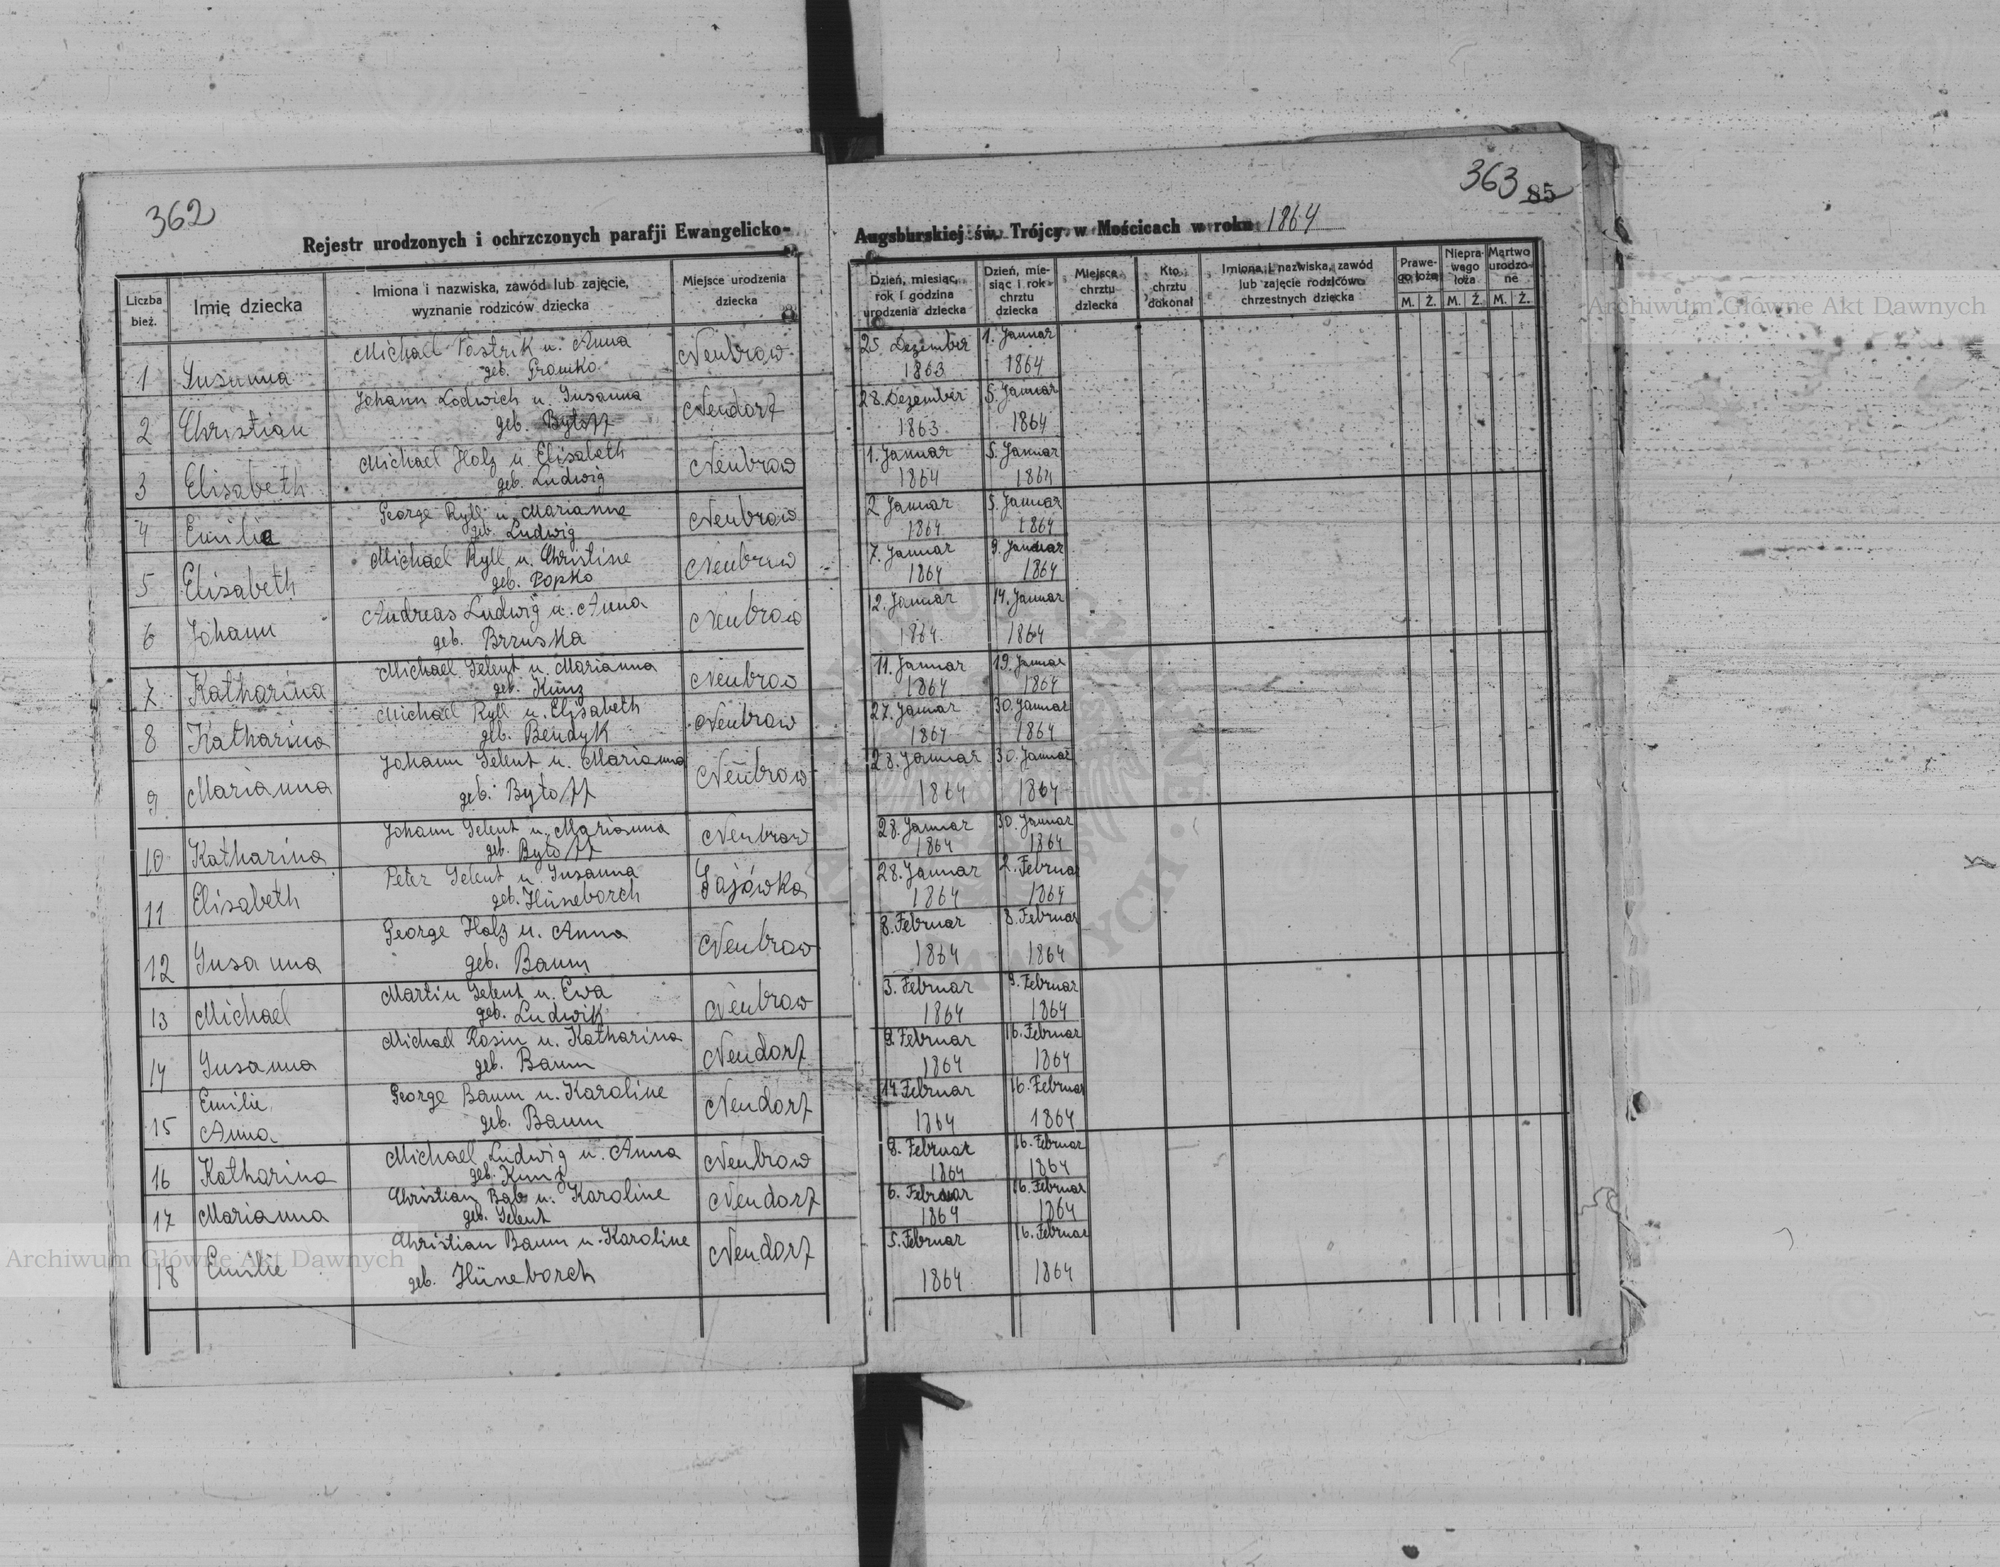 362
363 85
Rejestr urodzonych i ochrzczonych parafji Ewangelicko-
Augsburskiej św. Trójcy w Mościcach w roku 1864
Liczba bież.
Imię dziecka
Imiona i nazwiska, zawód lub zajęcie, wyznanie rodziców dziecka
Miejsce urodzenia dziecka
Dzień, miesiąc, rok i godzina urodzenia dziecka
Dzień, miesiąc i rok chrztu dziecka
Miejsce chrztu dziecka
Kto chrztu dokonał
Imiona i nazwiska, zawód lub zajęcie rodziców chrzestnych dziecka
Prawego łoża
Nieprawego łoża
Martwo urodzone
M. Ż. M. Ż. M. Ż.
1 Susanna Michael Pastrik u. Anna geb. Gromko Neubrow 25. Dezember 1863 1. Januar 1864
2 Christian Johann Lodwich u. Susanna geb. Bytoff Neudorf 28. Dezember 1863 5. Januar 1864
3 Elisabeth Michael Holz u. Elisabeth geb. Ludwig Neubrow 1. Januar 1864 5. Januar 1864
4 Emilie George Ryll u. Marianne geb. Ludwig Neubrow 2 Januar 1864 5. Januar 1864
5 Elisabeth Michael Ryll u. Christine geb. Popko Neubrow 7. Januar 1864 9. Januar 1864
6 Johann Andreas Ludwig u. Anna geb. Bzruska Neubrow 12. Januar 1864 14. Januar 1864
7 Katharina Michael Selent u. Marianna geb. Kunz Neubrow 11. Januar 1864 19. Januar 1864
8 Katharina Michael Ryll u. Elisabeth geb. Bendyk Neubrow 27. Januar 1864 30. Januar 1864
9 Marianna Johann Selent u. Marianna geb. Bytoff Neubrow 28. Januar 1864 30. Januar 1864
10 Katharina Johann Selent u. Marianna geb. Bytoff Neubrow 28. Januar 1864 30. Januar 1864
11 Elisabeth Peter Selent u. Susanna geb. Hüneborch Gajówka 28. Januar 1864 2. Februar 1864
12 Susanna George Holz u. Anna geb. Baum Neubrow 8. Februar 1864 8. Februar 1864
13 Michael Martin Selent u. Ewa geb. Ludwik Neubrow 3. Februar 1864 9. Februar 1864
14 Susanna Michael Rosin u. Katharina geb. Baum Neudorf 9. Februar 1864 16. Februar 1864
15 Emilie Anna George Baum u. Karoline geb. Baum Neudorf 14. Februar 1864 16. Februar 1864
16 Katharina Michael Ludwig u. Anna geb. Kunz Neubrow 8. Februar 1864 16. Februar 1864
17 Marianna Christian u. Karoline geb. Selent Neudorf 6. Februar 1864 16. Februar 1864
18 Emilie Christian Baum u. Karoline geb. Hüneborch Neudorf 5. Februar 1864 16. Februar 1864
Archiwum Główne Akt Dawnych
Archiwum Główne Akt Dawnych